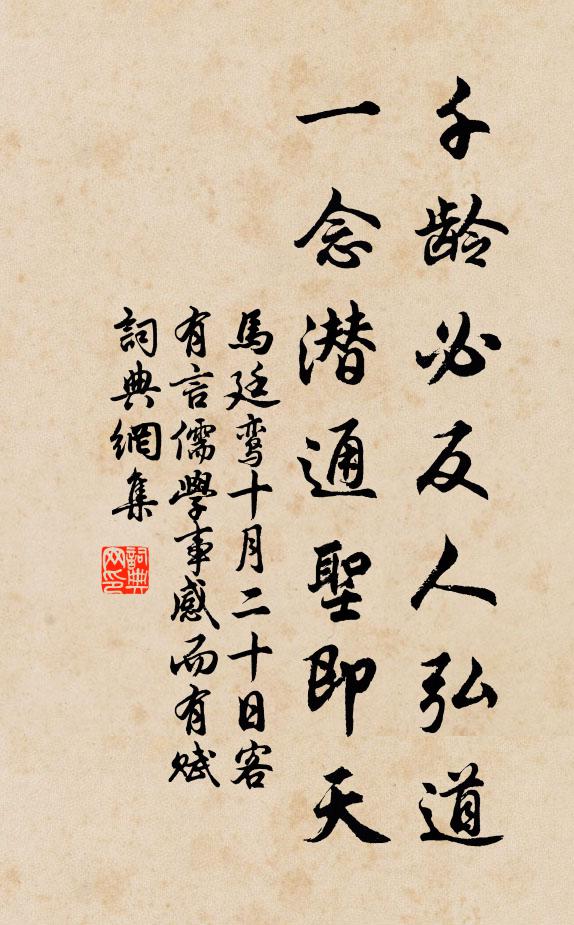 千龄必反人弘道
一念潜通聖即天
馬廷鸞十月二十日客
有言儒學事感而有赋
詞典網集
詞典
网印